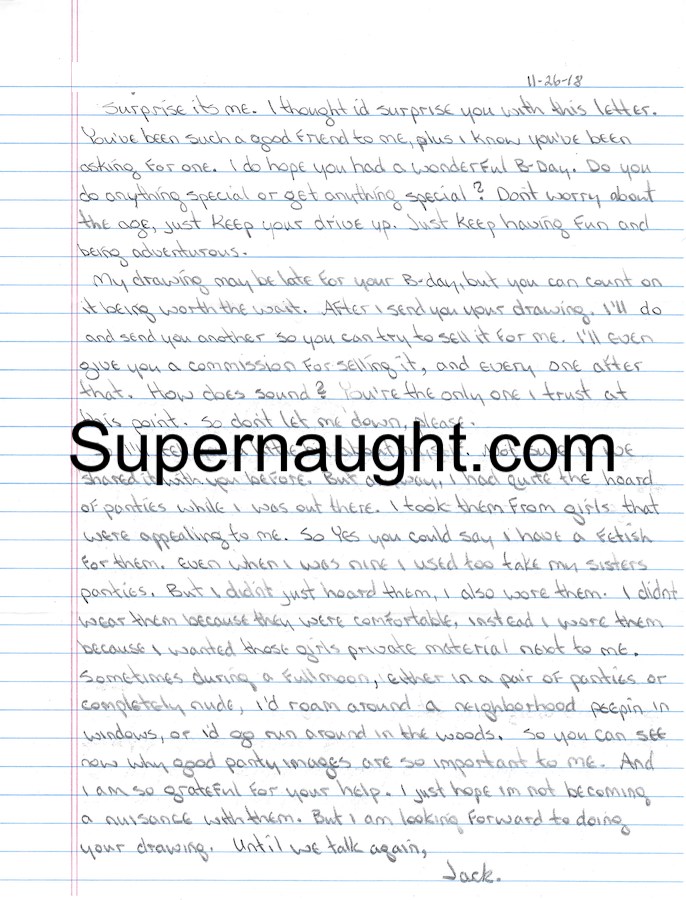 11-26-18
Surprise its me. I thought id surprise you with this letter.
You've been such a good friend to me, plus i know you've been
asking for one. I do hope you had a wonderful B-Day. Do you
do anything special or get anything special? Dont worry about
the age, just keep your drive up. Just keep having fun and
being adventurous.
My drawing may be late for your B-day, but you can count on
it being worth the wait. After i send you your drawing. I'll do
and send you another so you can try to sell it for me. I'll even
give you a commission for selling it, and every one after
that. How does sound? You're the only one i trust at
this point. So dont let me down, please.
Supernaught.com
shared it with you before. But anyway, i had quite the hoard
of panties while i was out there. I took them from girls that
were appealing to me. So Yes you could say i have a fetish
for them. Even when i was nine i used too take my sisters
panties. But i didnt just hoard them, i also wore them. I didnt
wear them because they were comfortable, instead i wore them
because i wanted those girls private material next to me.
Sometimes during a fullmoon, either in a pair of panties or
completely nude, i'd roam around a neighborhood peepin in
windows, or i'd go run around in the woods. So you can see
now why good panty images are so important to me. And
i am so grateful for your help. I just hope im not becoming
a nuisance with them. But i am looking forward to doing
your drawing. Until we talk again,
Jack.